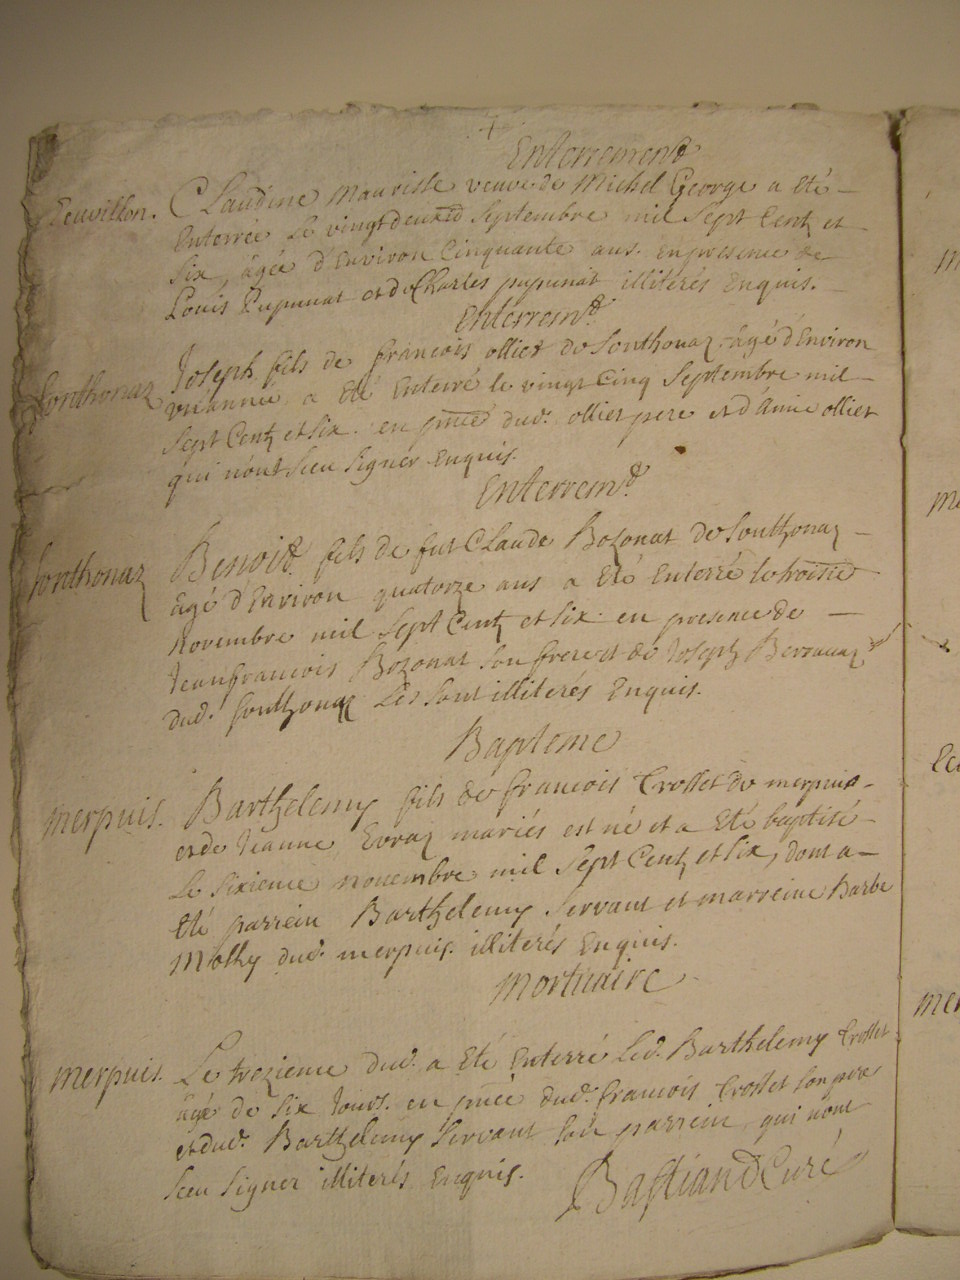 +
Enterrement
Teuvillon. Claudine Mauriste veuve de Michel George a eté
enterrée le vingtdeuxie septembre mil sept Centz et
six, âgée d'environ Cinquante ans. en presence de
Louis Pupunat et de Charles pupunat illiterés enquis.
Enterremt.
Sonthonaz Joseph fils de francois olliet de Sonthonaz âgé d'Environ
un année a eté enterré le vingt Cinq Septembre mil
sept Centz et six. en pnce dud. olliet pere et d'Amie olliet
qui n'ont sceu signer enquis.
Enterremt.
Sonthonaz Benoit fils de fut Claude Bozonat de Sonthonaz
âgé d'Environ quatorze ans a eté enterré le troisie
novembre mil sept Centz et six en presence de
Jeanfrancois Bozonat son frere et de Joseph
dud. Sonthonaz Les sont illiterés enquis.
Bapteme
merpuis. Barthelemy fils de francois Crollet de merpuis
et de Jeanne Evraz mariés est né et a eté baptisé
le sixieme novembre mil sept Centz et six, dont a
eté parrein Barthelemy Servant et marreine Barbe
Mothy dud. merpuis. illiterés enquis.
Mortuaire
merpuis. Le trezieme dud. a eté enterré led. Barthelemy Crollet
âgé de six jours. en pnce dud. francois Crollet son pere
et dud. Barthelemy Servant son parrein, qui n'ont
sceu signer illiterés enquis.
Bastiand Curé